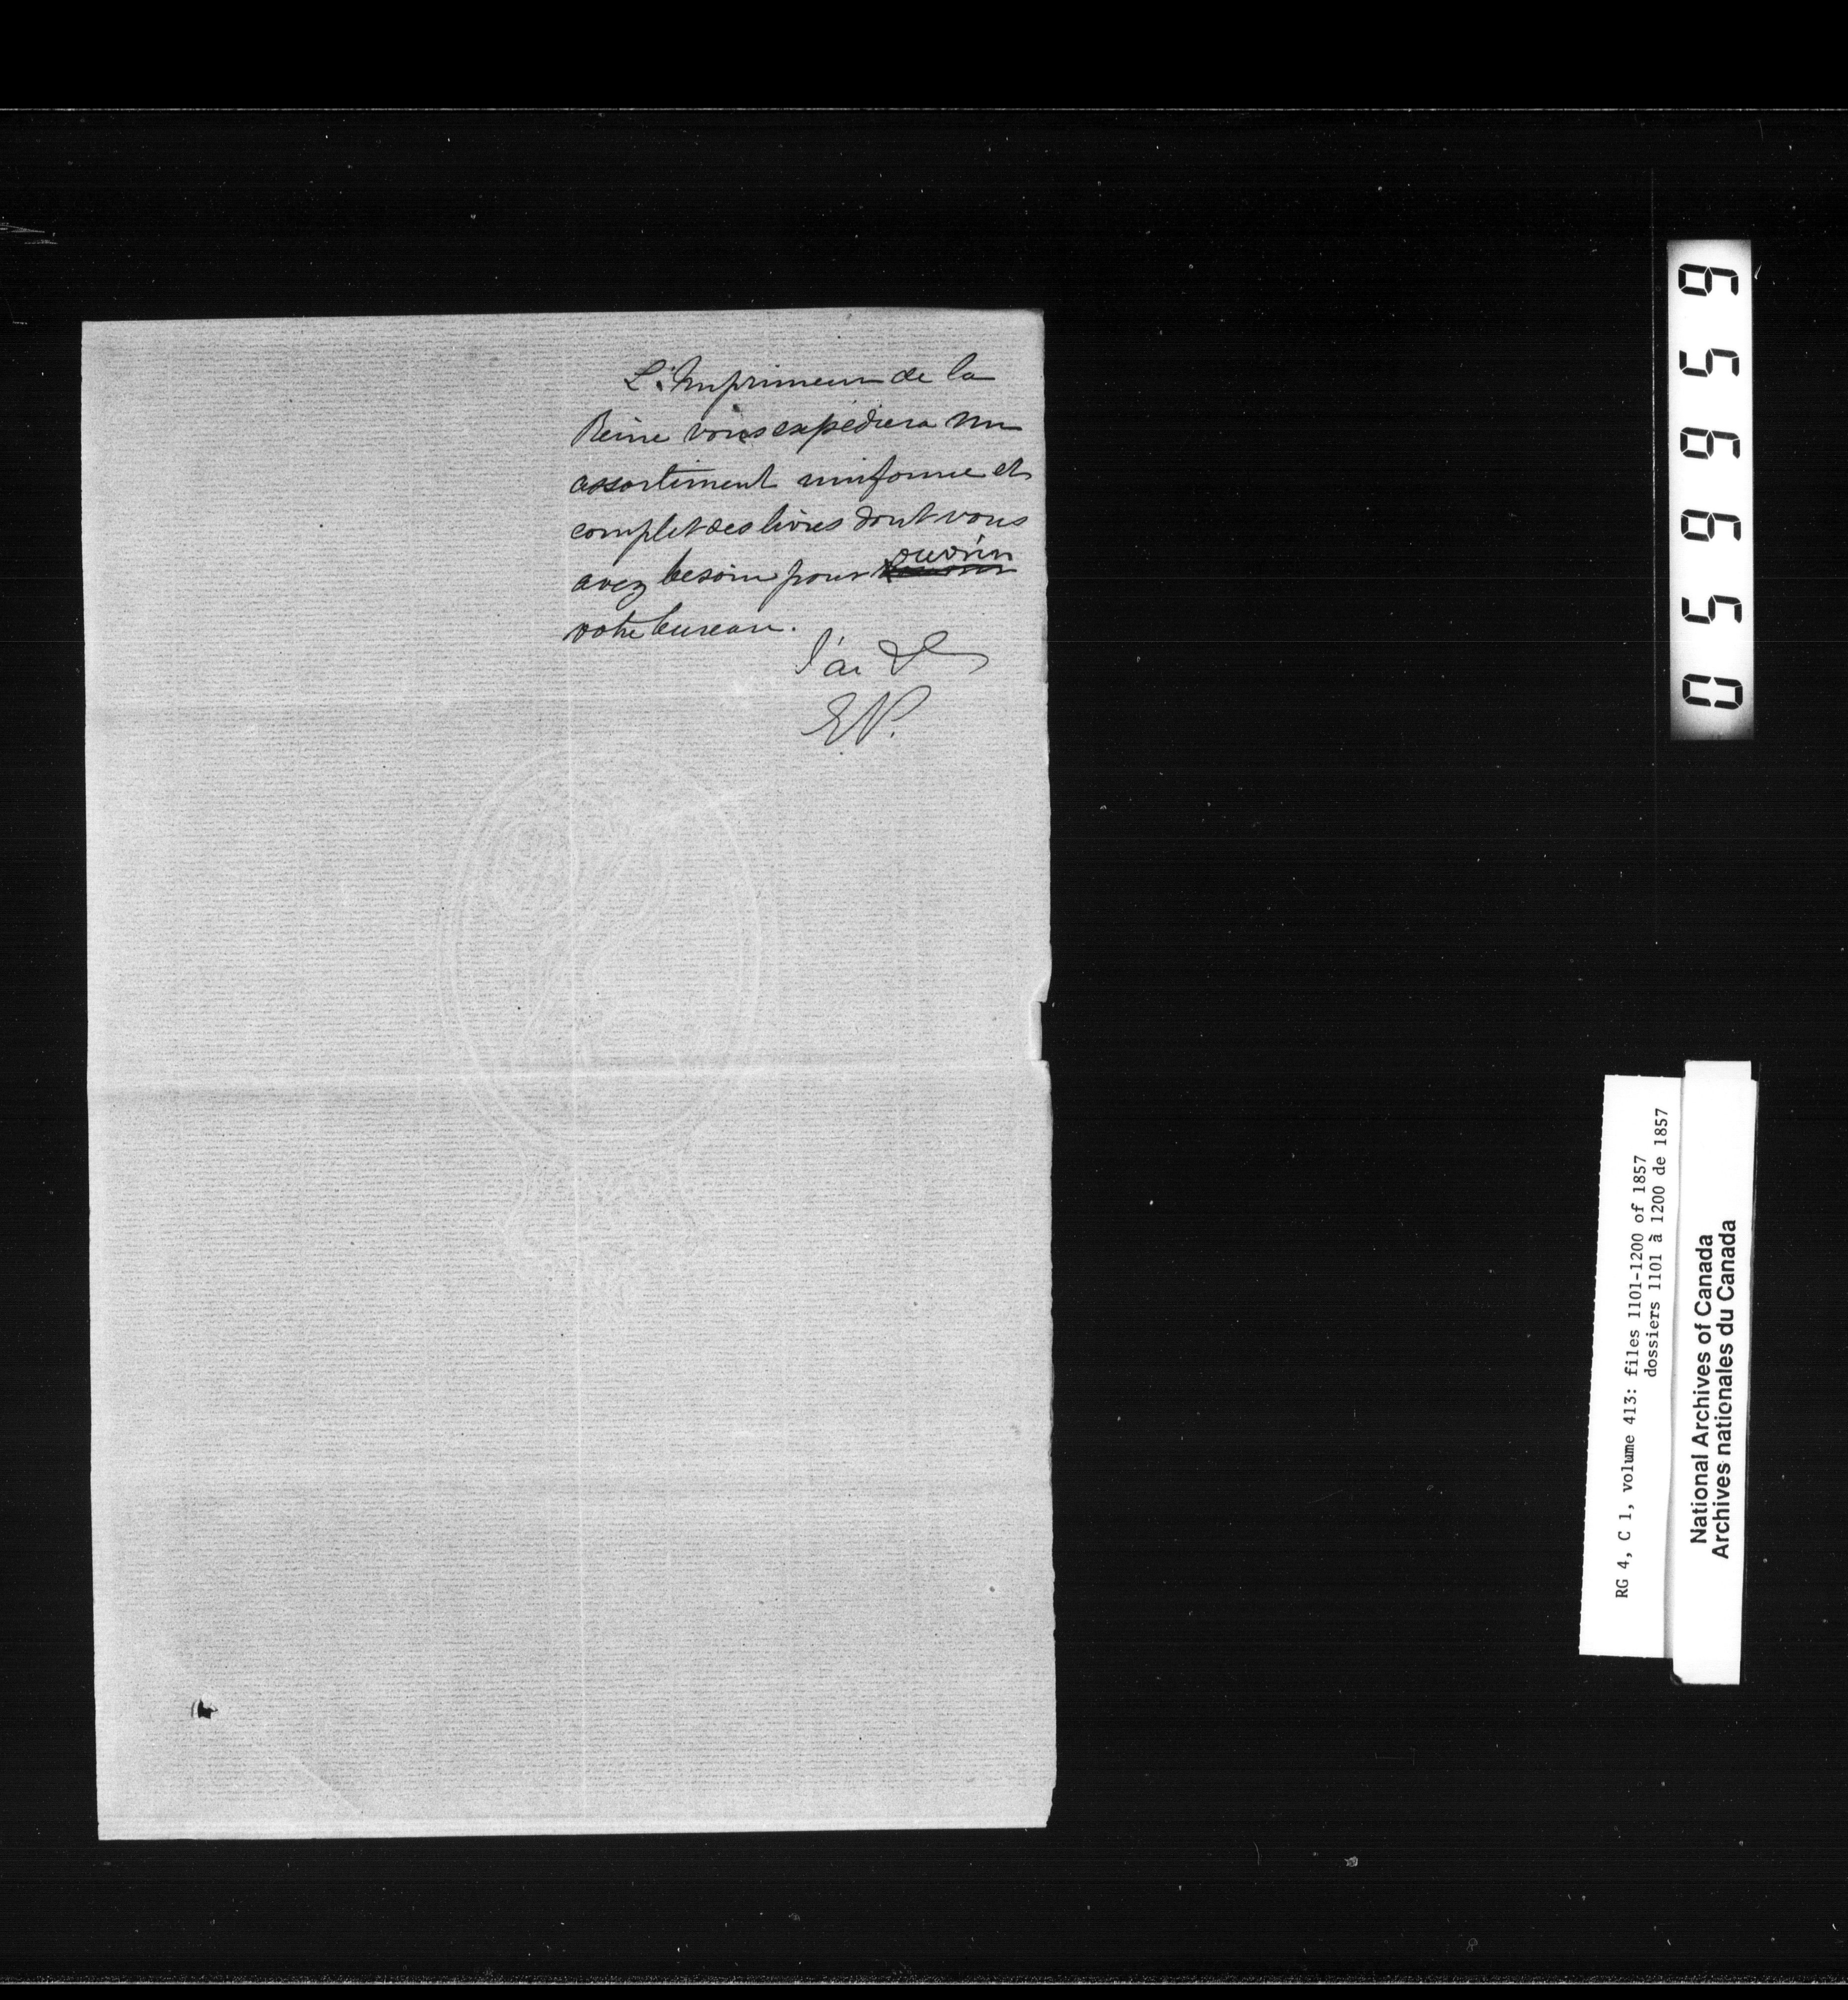 L'Imprimeur de la
Reine vous expédiera un
assortiment uniforme et
complet des livres dont vous
ouvrir
avez besoin pour
votre bureau.
J'ai &
E.P.
059959
RG 4, C 1, volume 413: files 1101-1200 of 1857
dossiers 1101 à 1200 de 1857
National Archives of Canada
Archives nationales du Canada